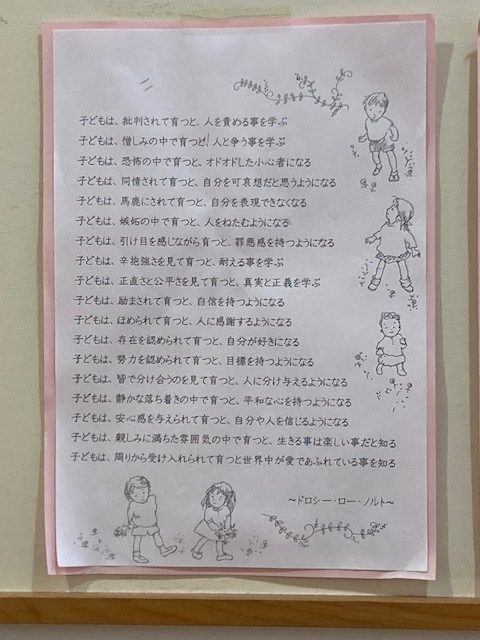 子どもは、批判されて育つと、人を責める事を学ぶ
子どもは、憎しみの中で育つと、人と争う事を学ぶ
子どもは、恐怖の中で育つと、オドオドした小心者になる
子どもは、同情されて育つと、自分を可哀想だと思うようになる
子どもは、馬鹿にされて育つと、自分を表現できなくなる
子どもは、嫉妬の中で育つと、人をねたむようになる
子どもは、引け目を感じながら育つと、罪悪感を持つようになる
子どもは、辛抱強さを見て育つと、耐える事を学ぶ
子どもは、正直さと公平さを見て育つと、真実と正義を学ぶ
子どもは、励まされて育つと、自信を持つようになる
子どもは、ほめられて育つと、人に感謝するようになる
子どもは、存在を認められて育つと、自分が好きになる
子どもは、努力を認められて育つと、目標を持つようになる
子どもは、皆で分け合うのを見て育つと、人に分け与えるようになる
子どもは、静かな落ち着きの中で育つと、平和な心を持つようになる
子どもは、安心感を与えられて育つと、自分や人を信じるようになる
子どもは、親しみに満ちた雰囲気の中で育つと、生きる事は楽しい事だと知る
子どもは、周りから受け入れられて育つと世界中が愛であふれている事を知る
～ドロシー・ロー・ノルト～